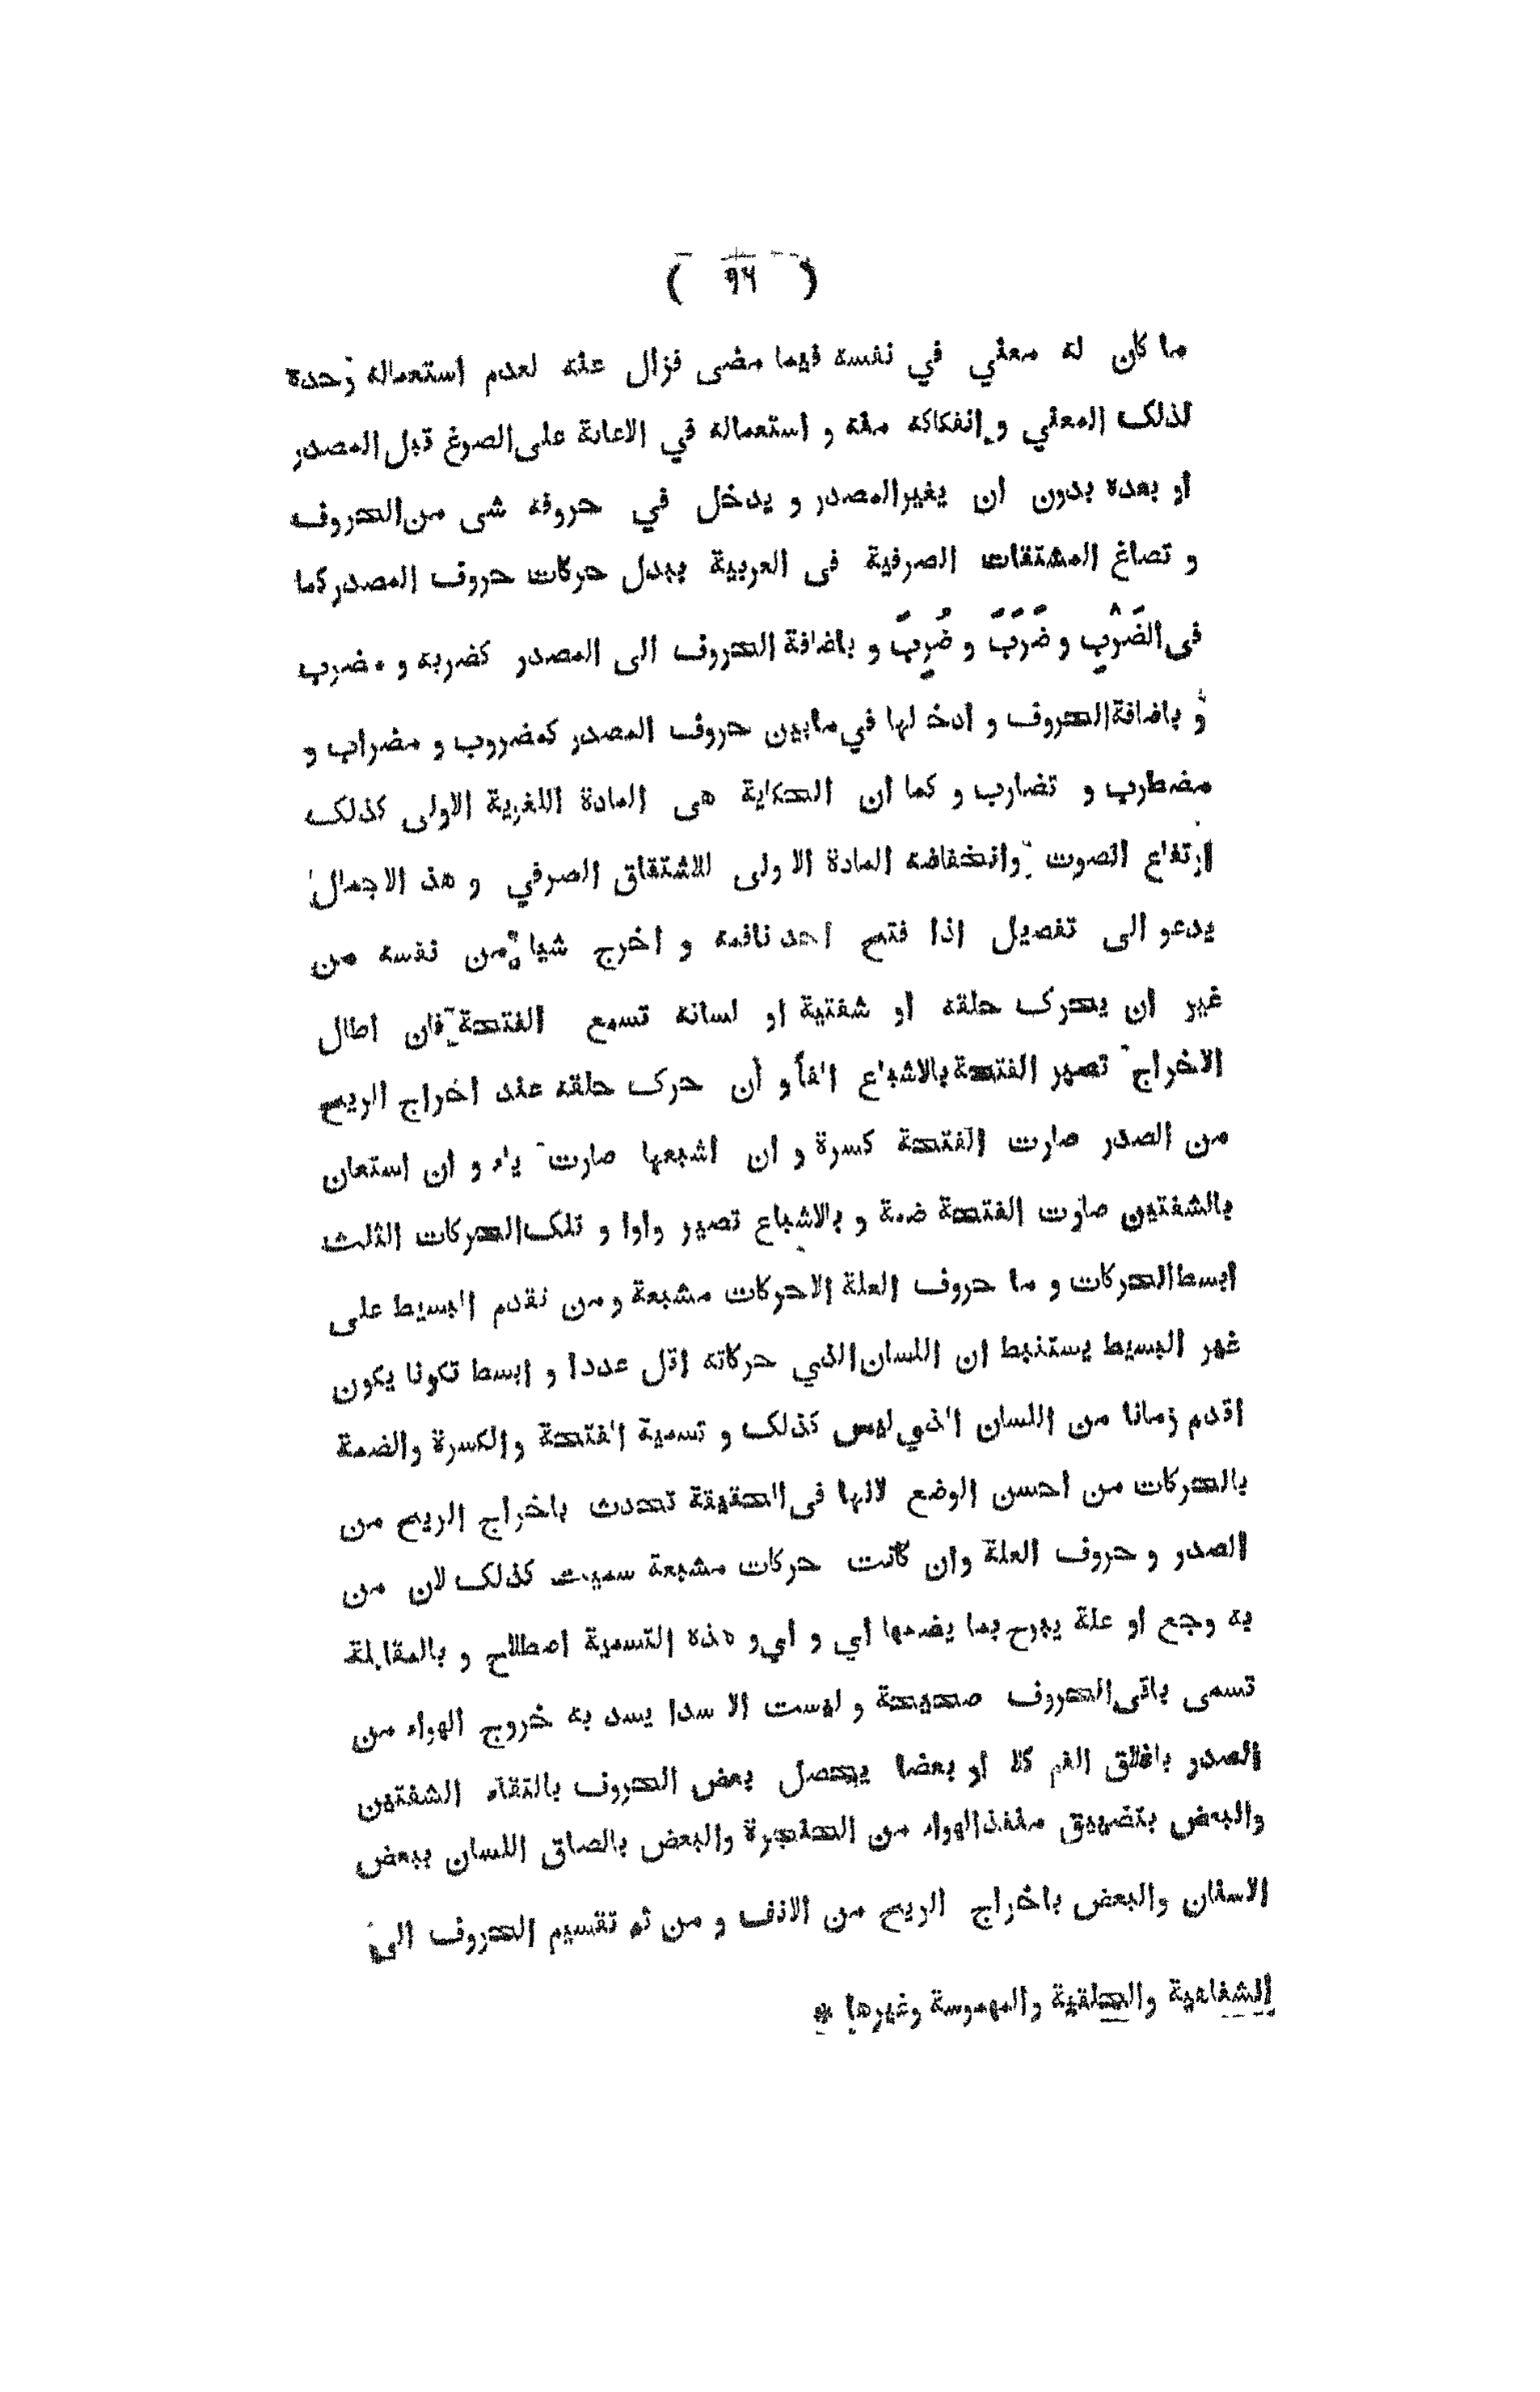 ( ٩٤ )
ما كان له معني في نفسه فيما مضى فزال عنه لعدم استعماله وحده
لذلك المعني و انفكاكه منه و استعماله في الاعانة على الصوغ قبل المصدر
او بعده بدون ان يغير المصدر و يدخل في حروفه شى من الحروف
و تصاغ المشتقات الصرفية فى العربية ببدل حركات حروف المصدر كما
فى الضَرْبِ و ضَرَبَ و ضُرِبَ و باضافة الحروف الى المصدر كضربه و مضرب
و باضافة الحروف و ادخ لها في مابين حروف المصدر كمضروب و مضراب و
مضطرب و تضارب و كما ان الحكاية هى المادة اللغوية الاولى كذلك
ارتفاع الصوت وانخفاضه المادة الاولى للاشتقاق الصرفي و هذ الاجمال
يدعو الى تفصيل اذا فتح احد نافمه و اخرج شيا من نفسه من
غير ان يحرك حلقه او شفتية او لسانه تسمع الفتحة فان اطال
الاخراج تصير الفتحة بالاشباع الفاً و أن حرك حلقه عند اخراج الريح
من الصدر صارت الفتحة كسرة و ان اشبعها صارت ياء و ان استعان
بالشفتين صارت الفتحة ضمة و بالاشباع تصير واوا و تلك الحركات الثلث
ابسط الحركات و ما حروف العلة الاحركات مشبعة و من تقدم البسيط على
غير البسيط يستنبط ان اللسان الذي حركاته اقل عددا و ابسط تكونا يكون
اقدم زمانا من اللسان الذي ليس كذلك و تسمية الفتحة والكسرة والضمة
بالحركات من احسن الوضع لانها فى الحقيقة تحدث باخراج الريح من
الصدر و حروف العلة وان كانت حركات مشبعة سميت كذلك لان من
به وجع او علة يبرح بما يضمها أي و أي و هذه التسمية اصطلاح و بالمقابلة
تسمى باقى الحروف صحيحة و ليست الا سدا يسد به خروج الهواء من
الصدر باغلاق الفم كلا او بعضا يحصل بعض الحروف بالتقاء الشفتين
والبعض بتضييق منفذ الهواء من الحنجرة والبعض بالصاق اللسان ببعض
الاسنان والبعض باخراج الريح من الانف و من ثم تقسيم الحروف الى
الشفاهية والحلقية والمهموسة وغيرها *